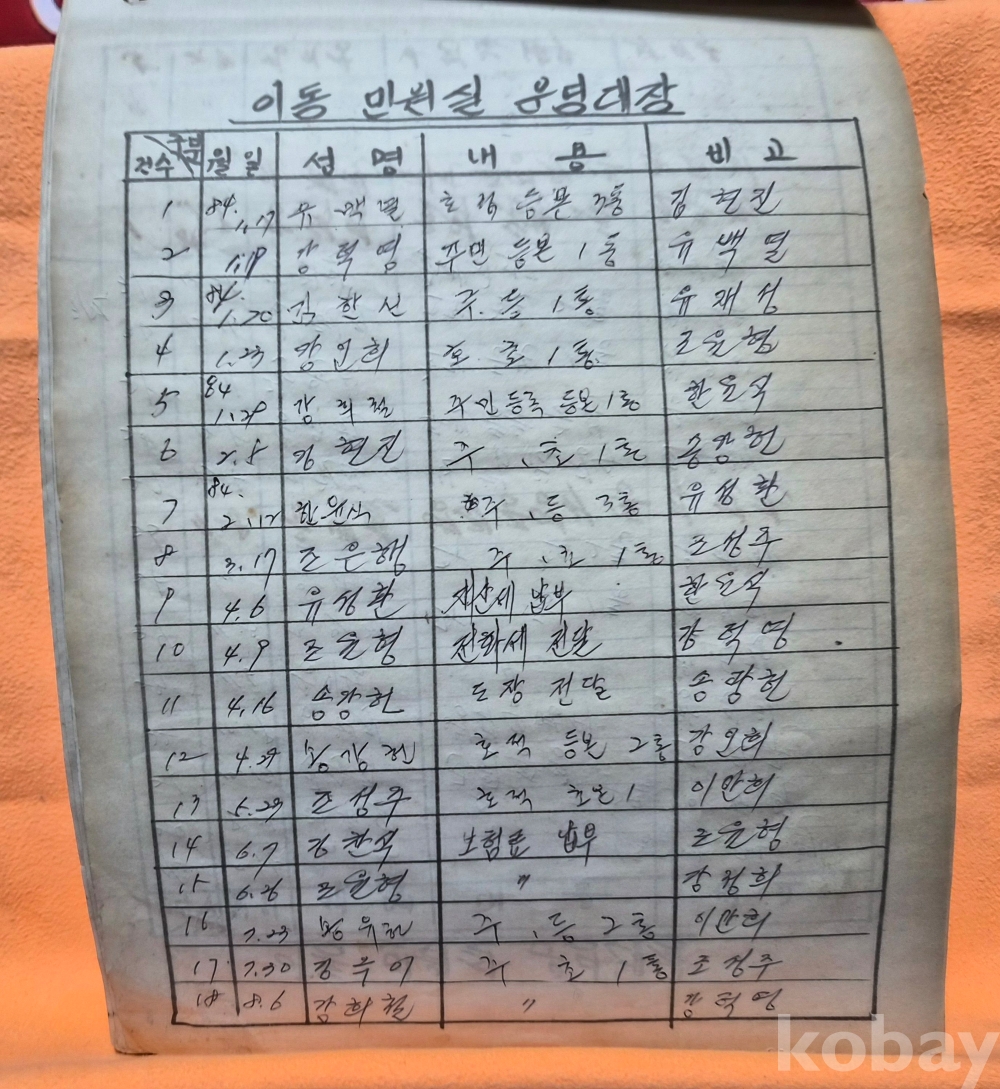 이동 민원실 운영대장
건수 구분 월일 성명 내용 비고
1 84. 1.17 유백열 호적 등본 3통 김현진
2 1.18 강덕영 주민 등본 1통 유백열
3 84. 1.20 김한선 주. 등 1통 유재성
4 1.23 강오희 호. 초 1통. 조윤형
5 84 1.28 강희철 주민등록 등본 1통 한윤석
6 2.5 김현진 주, 초 1통 송강헌
7 84. 2.12 한윤석 주, 등 3통 유성환
8 3.17 조은행 주, 초 1통 조성주
9 4.6 유성환 재산세 납부 한윤석
10 4.9 조윤형 전화세 전달 강덕영
11 4.16 송강헌 도장 전달 송광헌
12 4.27 송강헌 호적 등본 2통 강오희
13 5.23 조성주 호적 초본 1 이만희
14 6.7 보험료 납부 조윤형
15 6.26 조윤형 〃 강정희
16 7.23 주, 등 2통 이만희
17 7.30 주 초 1통 조정주
18 8.6 강희철 〃 강덕영
kobay